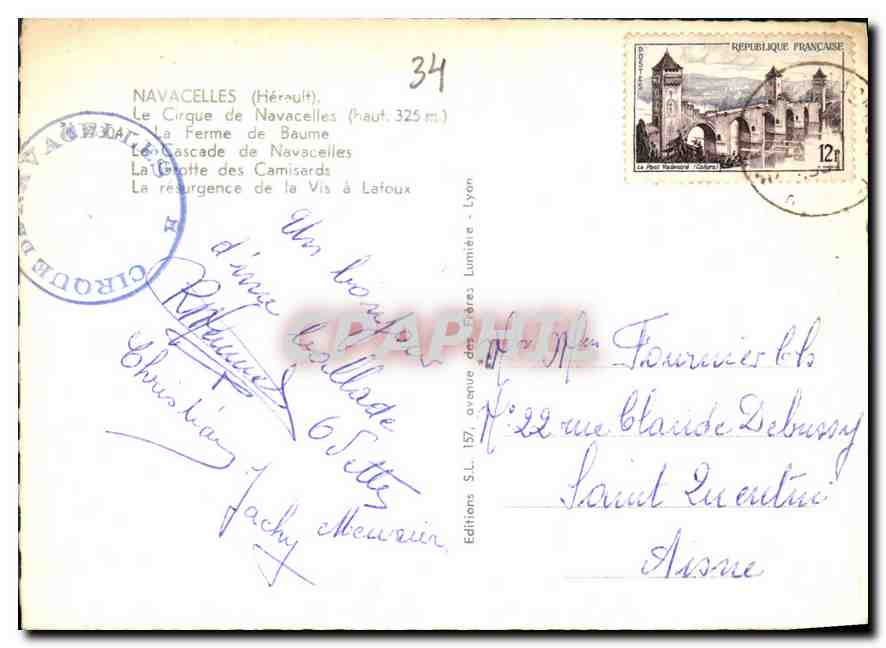 34
NAVACELLES (Hérault).
Le Cirque de Navacelles (haut. 325 m.)
La Ferme de Baume
La Cascade de Navacelles
La Grotte des Camisards
La résurgence de la Vis à Lafoux
CIRQUE DE NAVACELLES
Un bonjour
d'une ballade
Odette
Christian
Jacky Meunier
Editions S.L. 157, avenue des Frères Lumière - Lyon
REPUBLIQUE FRANÇAISE
POSTES
12F
Le Pont Valentré (Cahors)
CPAPHIL
Mr Mme Fournier Ch
N° 22 rue Claude Debussy
Saint Quentin
Aisne